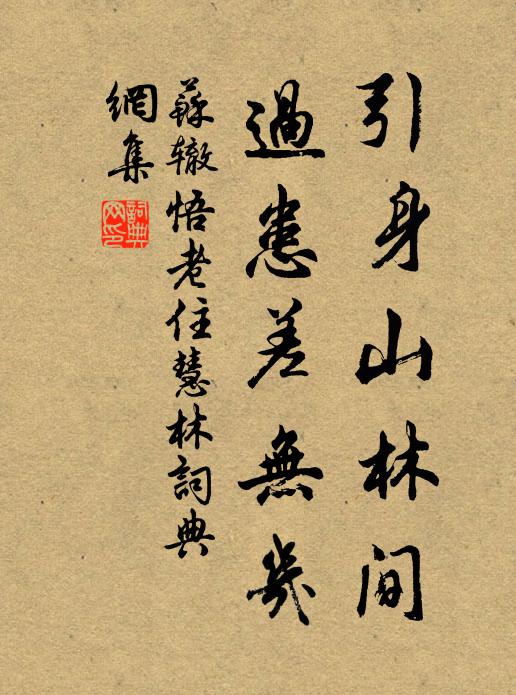 引身山林间
過患差無幾
蘇辙悟老住慧林詞典
網集
詞典
网印